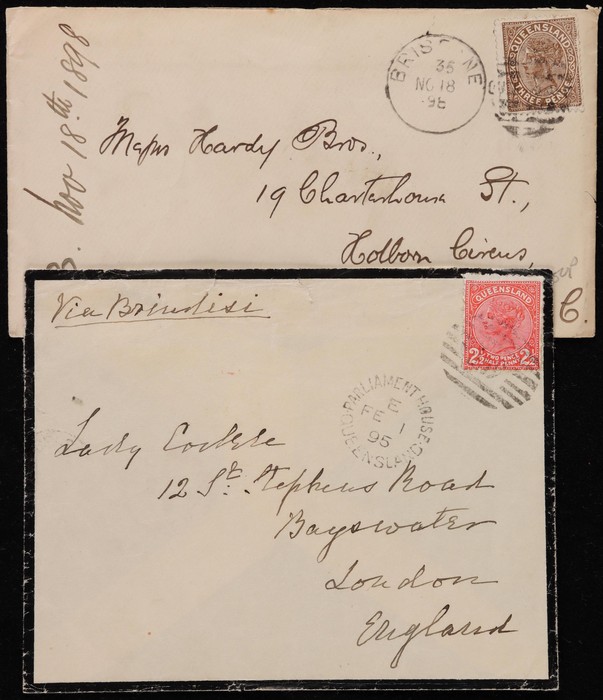 Nov 18th 1898
BRISBANE
35
NO 18
98
QUEENSLAND
THREE PENCE
Messrs Hardy Bros.,
19 Charterhouse St.,
Holborn Circus,
C.
Via Brindisi
QUEENSLAND
2½ TWO PENCE 2½
HALF PENNY
PARLIAMENT HOUSE
E
FE 1
95
QUEENSLAND
Lady
12 St. Stephens Road
Bayswater
London
England